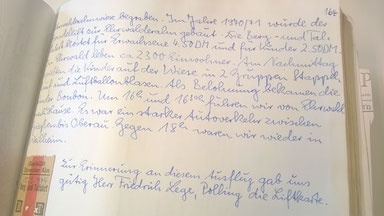 168
begraben. Im Jahre 1970/71 würde der
gebaut. Die Berg- und Tal-
kostet für Erwachsene 4.50DM und für Kinder 2.50DM.
Ehrwald leben ca 2300 Einwohner. Am Nachmittag
die Kinder auf der Wiese in 2 Gruppen Stappel
und Luftballonblasen. Als Belohnung bekamen die
Bonbon. Um 16h und 1630h führen wir von Ehrwald
Hause. Es war ein starker Autoverkehr zwischen
bis Oberau. Gegen 18h waren wir wieder in
Zur Erinnerung an diesen Ausflug gab uns
gütig Herr Friedrich Lege, Polling die Luftkarte.